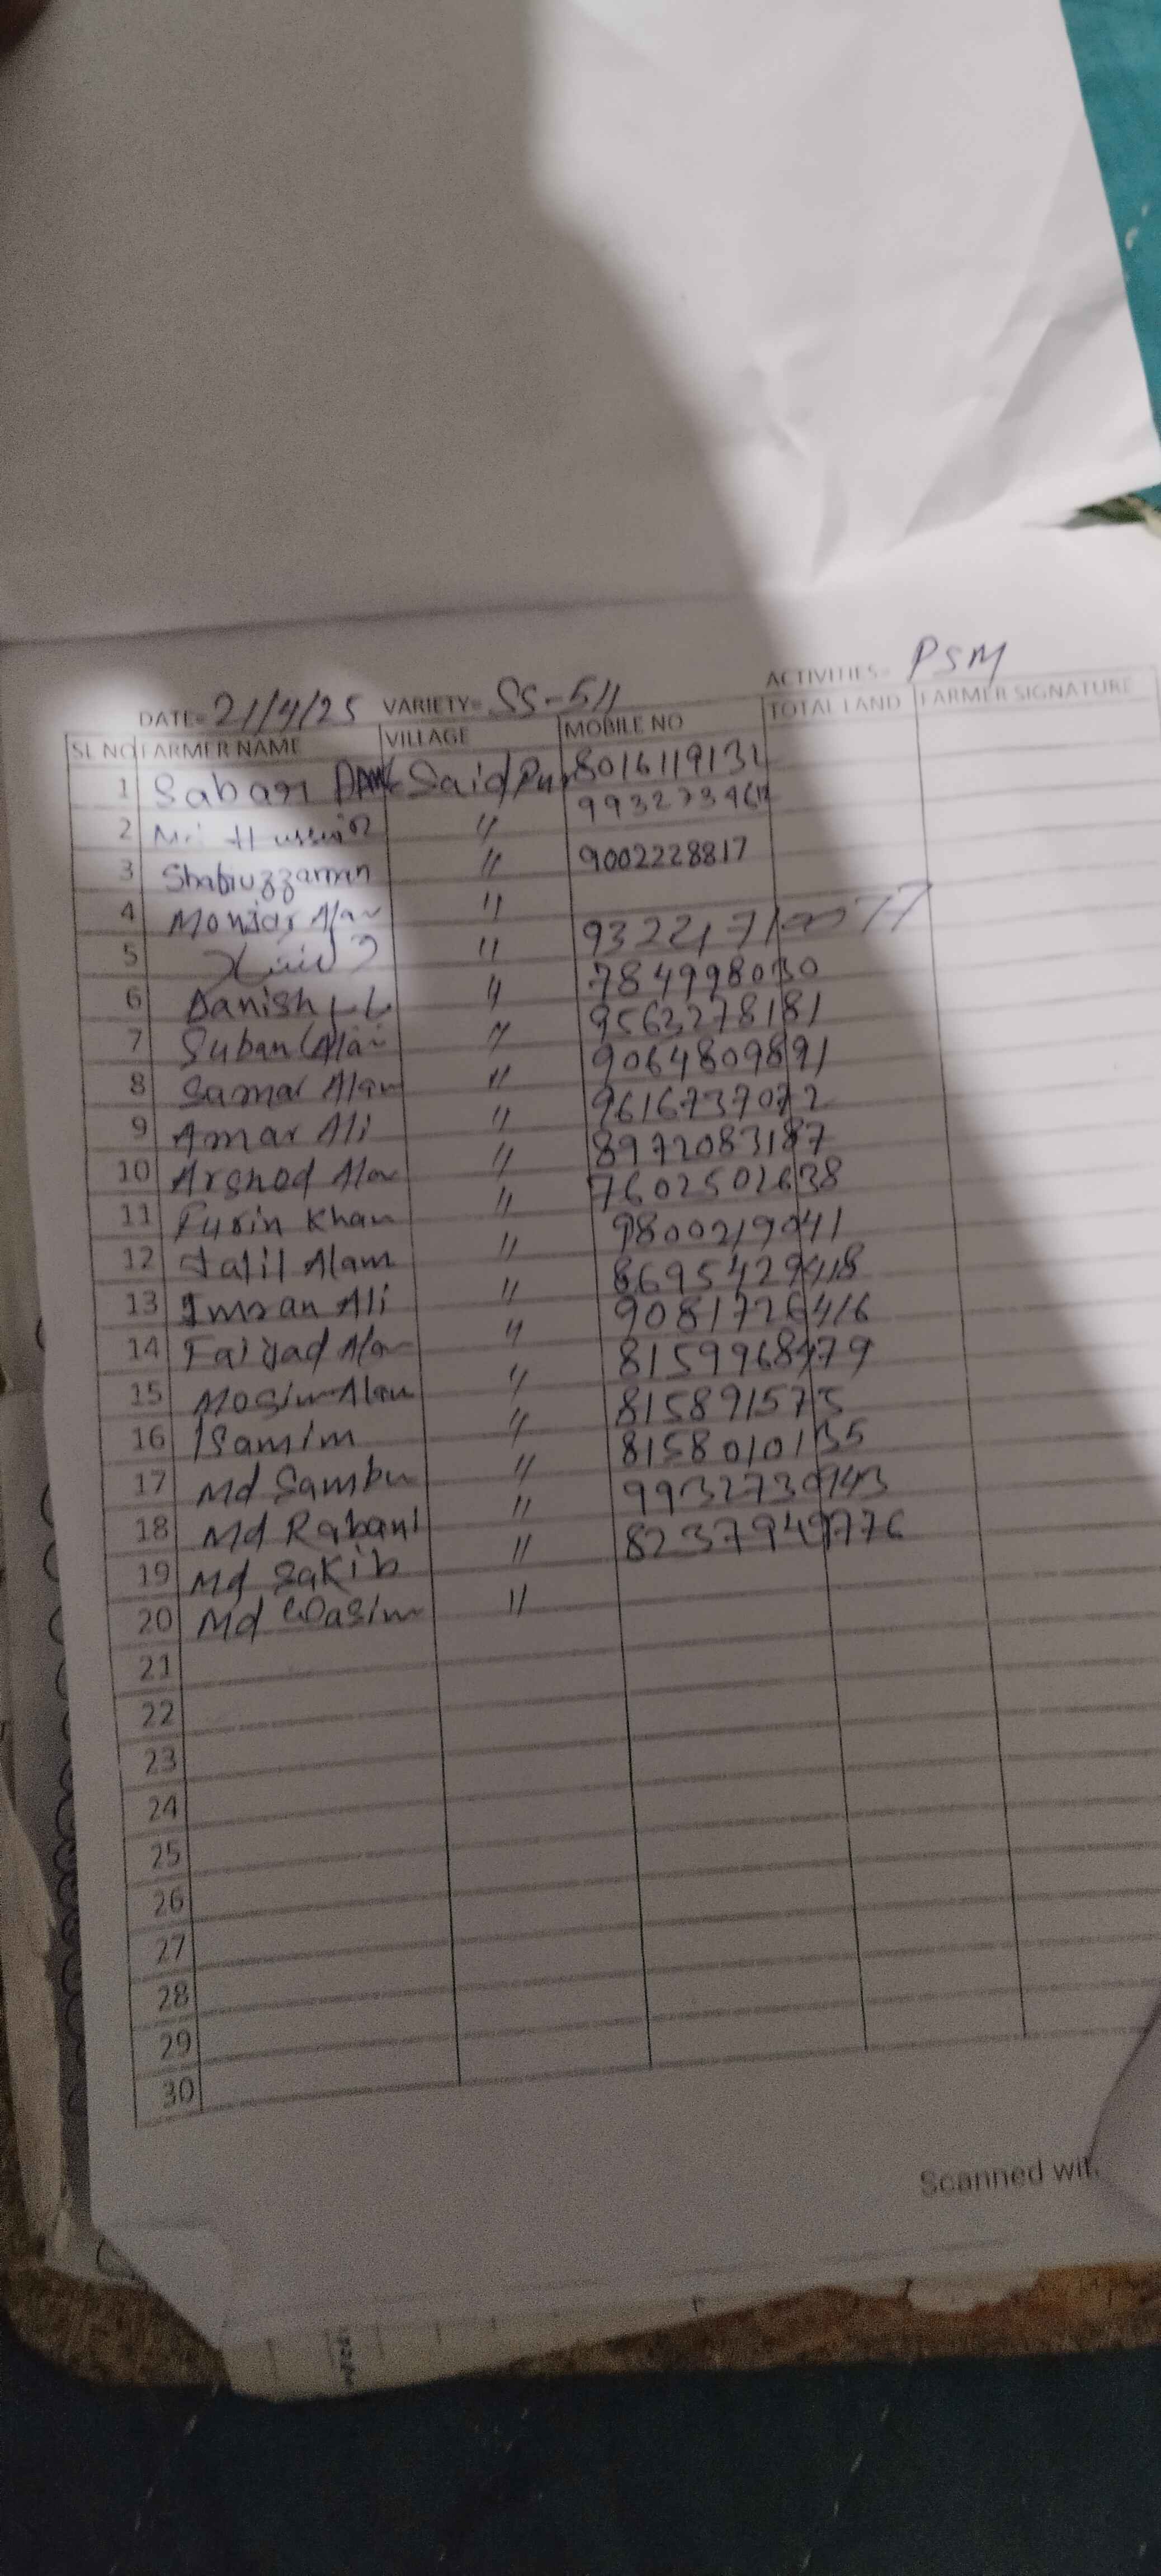 ACTIVITIES- PSM
DATE- 21/4/25 VARIETY- SS-511
SL NO FARMER NAME VILLAGE MOBILE NO TOTAL LAND FARMER SIGNATURE
1 Sabari Saidpur 8016119131
2 Md Hussain " 9932739611
3 Shabiuzzaman " 9002228817
4 Monjar Alam "
5 " 9322171
6 Danish " 784998030
7 Suban Alam " 9563278181
8 Samar Alam " 9064809891
9 Amar Ali " 9616737072
10 Arshod Alam " 8972083187
11 Furin Khan " 7602502638
12 Jalil Alam " 9800219041
13 Imran Ali " 8695429418
14 Faiyad Alam " 9081726416
15 Mosim Alam " 8159968479
16 Isamim " 815891575
17 Md Sambu " 8158010135
18 Md Rabani " 9932730143
19 Md Sakib " 8237949776
20 Md Wasim "
21
22
23
24
25
26
27
28
29
30
Scanned wit